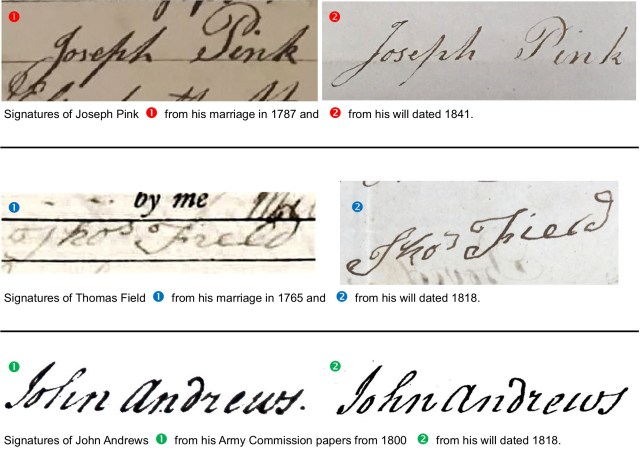 1 2
Joseph Pink Joseph Pink
Signatures of Joseph Pink 1 from his marriage in 1787 and 2 from his will dated 1841.
1 by me 2
Thos Field Thos Field
Signatures of Thomas Field 1 from his marriage in 1765 and 2 from his will dated 1818.
1 2
John Andrews. John Andrews
Signatures of John Andrews 1 from his Army Commission papers from 1800 2 from his will dated 1818.